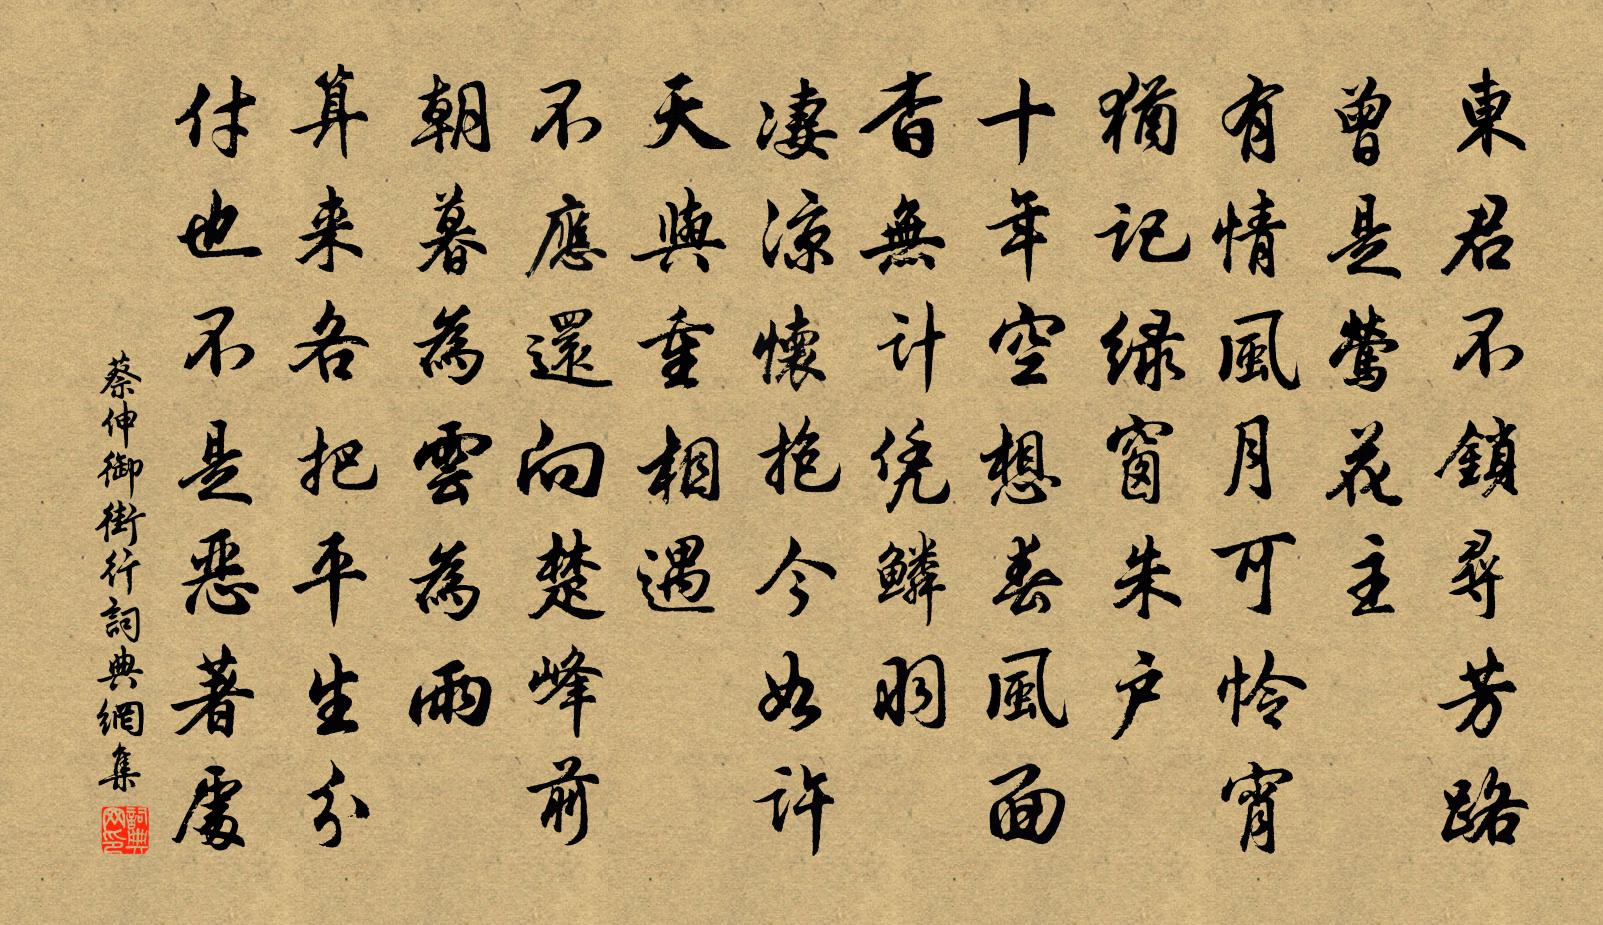 東君不鎖尋芳路
曾是鶯花主
有情風月可怜宵
猶記緑窗朱户
十年空想春風面
杳無計凭鱗羽
凄涼懷抱今如许
天與重相遇
不應還向楚峰前
朝暮為雲為雨
算来各把平生分
付也不是恶著處
蔡伸御街行詞典網集
詞典
网印